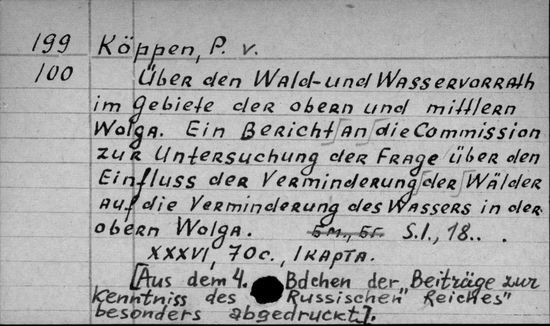 199 Köppen, P. v.
100 Über den Wald- und Wasservorrath
im Gebiete der obern und mittlern
Wolga. Ein Bericht [an] die Commission
zur Untersuchung der Frage über den
Einfluss der Verminderung [der] Wälder
auf die Verminderung des Wassers in der
obern Wolga. Б.м., Б.г. S.l., 18.. .
XXXVI, 70 с., 1 карта.
[Aus dem 4. Bdchen der „Beiträge zur
Kenntniss des Russischen Reiches"
besonders abgedruckt].